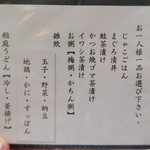 お一人様一品お選び下さい。
じゃこごはん
まぐろ漬丼
鮭茶漬け
かつお焼ゴマ茶漬け
イワシ茶漬け
お粥【梅粥・かちん粥】
雑炊
玉子・野菜・納豆
地鶏・かに・すっぽん
稲庭うどん【冷し・釜揚げ】